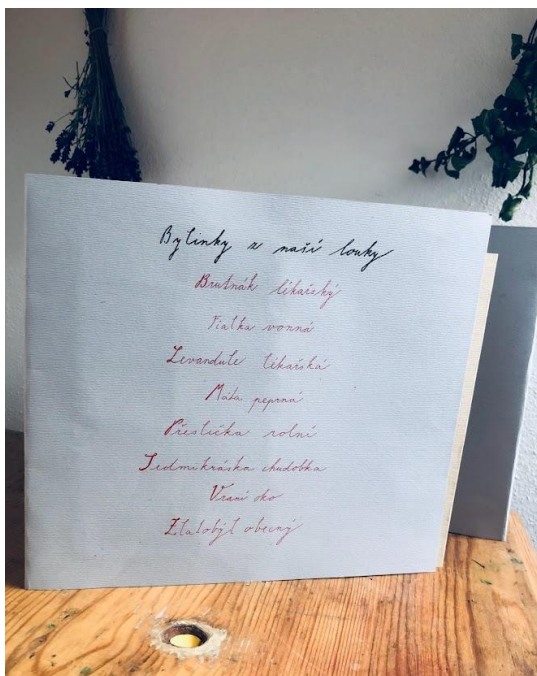 Bylinky z naší louky
Brutnák lékařský
Fialka vonná
Levandule lékařská
Máta peprná
Přeslička rolní
Sedmikráska chudobka
Vraní oko
Zlatobýl obecný